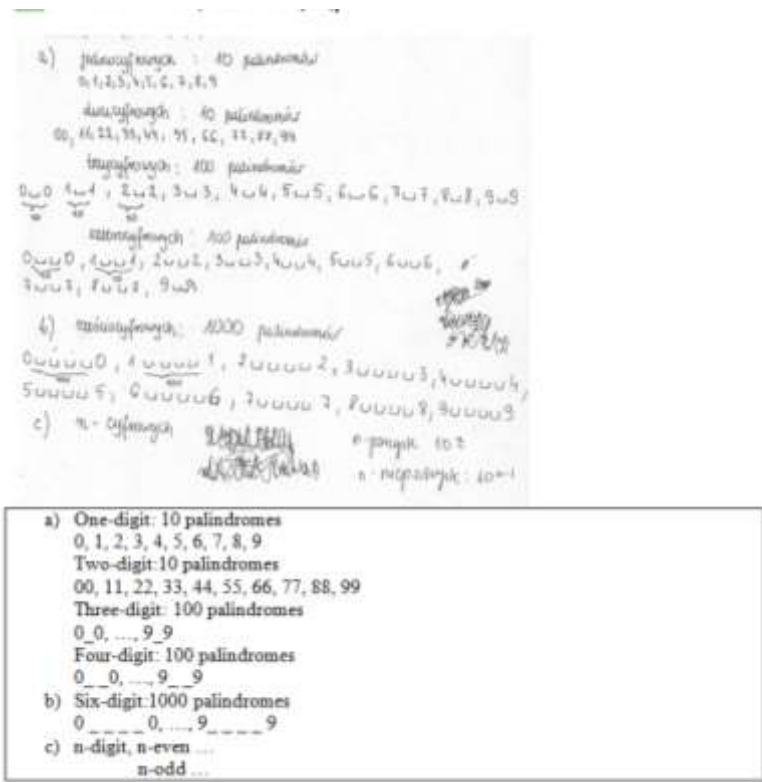 a) jednocyfrowych : 10 palindromów
0,1,2,3,4,5,6,7,8,9
dwucyfrowych : 10 palindromów
00, 11, 22, 33, 44, 55, 66, 77, 88, 99
trzycyfrowych: 100 palindromów
0_0 1_1, 2_2, 3_3, 4_4, 5_5, 6_6, 7_7, 8_8, 9_9
czterocyfrowych : 100 palindromów
0__0, 1__1, 2__2, 3__3, 4__4, 5__5, 6__6,
7__7, 8__8, 9_9
b) sześciocyfrowych: 1000 palindromów
0____0, 1____1, 2____2, 3____3, 4____4,
5____5, 6____6, 7____7, 8____8, 9____9
c) n-cyfrowych
a) One-digit: 10 palindromes
0, 1, 2, 3, 4, 5, 6, 7, 8, 9
Two-digit:10 palindromes
00, 11, 22, 33, 44, 55, 66, 77, 88, 99
Three-digit: 100 palindromes
0_0, ..., 9_9
Four-digit: 100 palindromes
0_ _0, ...., 9_ _9
b) Six-digit:1000 palindromes
0 _ _ _ _ 0, ...., 9_ _ _ _ 9
c) n-digit, n-even ...
n-odd ...